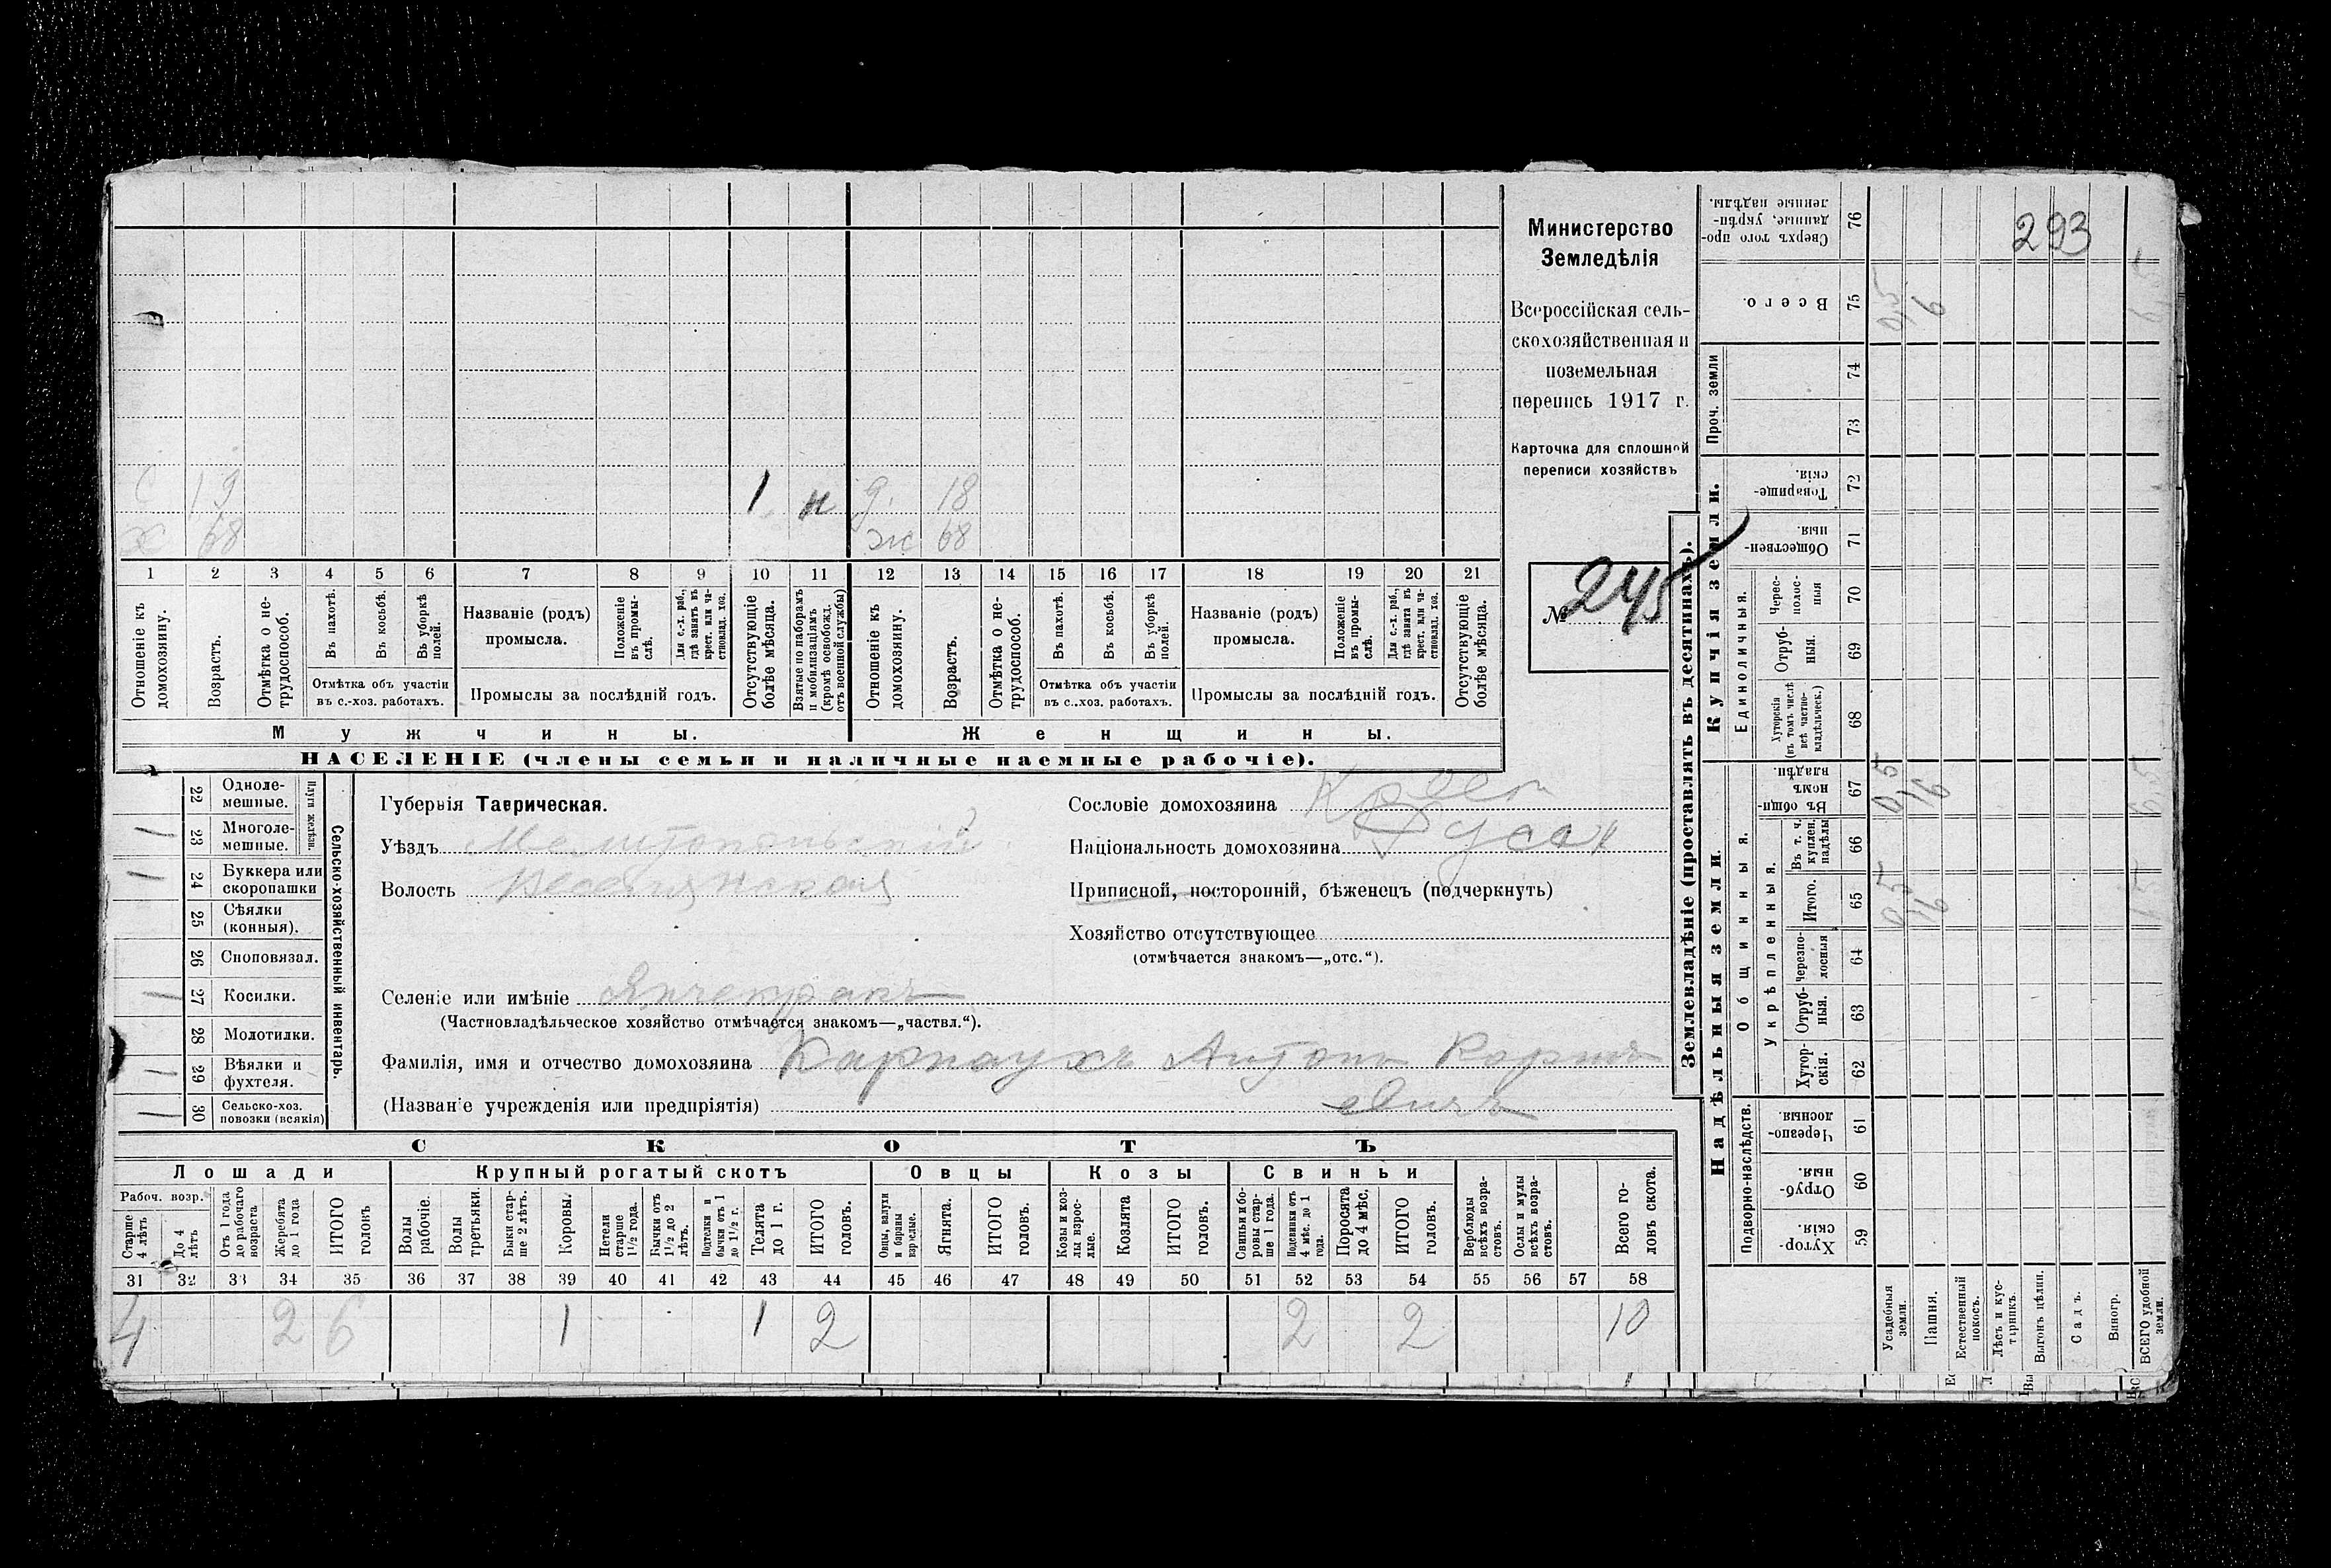 293
Министерство
Земледѣлія
Всероссійская сель-
скохозяйственная и
поземельная
перепись 1917 г.
Карточка для сплошной
переписи хозяйствъ
№ 245
с 19 1 н д. 18
х 68 ж 68
1 2 3 4 5 6 7 8 9 10 11 12 13 14 15 16 17 18 19 20 21
Отношеніе къ домохозяину.
Возрастъ.
Отмѣтка о не-трудоспособ.
Въ пахотѣ.
Въ косьбѣ.
Въ уборкѣ полей.
Отмѣтка объ участіи
въ с.-хоз. работахъ.
Названіе (родъ)
промысла.
Положеніе въ промы-слѣ.
Для с.-х. раб., гдѣ занятъ въ крест. или ча-стновлад. хоз.
Промыслы за послѣдній годъ.
Отсутствующіе болѣе мѣсяца.
Взятые по наборамъ и мобилизаціямъ (кромѣ освобожд. отъ военной службы)
Отношеніе къ домохозяину.
Возрастъ.
Отмѣтка о не-трудоспособ.
Въ пахотѣ.
Въ косьбѣ.
Въ уборкѣ полей.
Отмѣтка объ участіи
въ с.-хоз. работахъ.
Названіе (родъ)
промысла.
Положеніе въ промы-слѣ.
Для с.-х. раб., гдѣ занятъ въ крест. или ча-стновлад. хоз.
Промыслы за послѣдній годъ.
Отсутствующіе болѣе мѣсяца.
Мужчины. Женщины.
НАСЕЛЕНІЕ (члены семьи и наличные наемные рабочіе).
Сельско-хозяйственный инвентарь.
Плуги желѣзн.
22 Однолемешные.
1 23 Многолемешные.
1 24 Буккера или скоропашки
25 Сѣялки (конныя).
26 Сноповязал.
1 27 Косилки.
28 Молотилки.
1 29 Вѣялки и фухтеля.
1 30 Сельско-хоз. повозки (всякія)
Губернія Таврическая.
Уѣздъ Мелитопольскій
Волость
Сословіе домохозяина Крест
Національность домохозяина Русск
Приписной, посторонній, бѣженецъ (подчеркнуть)
Хозяйство отсутствующее
(отмѣчается знакомъ—„отс.“).
Селеніе или имѣніе Янчекракъ
(Частновладѣльческое хозяйство отмѣчается знакомъ—„частвл.“).
Фамилія, имя и отчество домохозяина Карнаухъ Антонъ Корнѣ
(Названіе учрежденія или предпріятія) евичъ
СКОТЪ
Лошади Крупный рогатый скотъ Овцы Козы Свиньи
Рабоч. возр.
Старше 4 лѣтъ
До 4 лѣтъ
Отъ 1 года до рабочаго возраста
Жеребята до 1 года
ИТОГО головъ
Волы рабочіе.
Волы третьяки.
Быки стар-ше 2 лѣтъ.
Коровы.
Нетели старше 1½ года.
Бычки отъ 1½ до 2 лѣтъ.
Подтелки и бычки отъ 1 до 1½ г.
Телята до 1 г.
ИТОГО головъ.
Овцы, валухи и бараны взрослые.
Ягнята.
ИТОГО головъ.
Козы и коз-лы взрос-лые.
Козлята
ИТОГО головъ.
Свиньи и бо-ровы стар-ше 1 года.
Подсвинки отъ 4 мѣс. до 1 года.
Поросята до 4 мѣс.
ИТОГО головъ.
Верблюды всѣхъ возра-стовъ.
Ослы и мулы всѣхъ возра-стовъ.
Всего го-ловъ скота.
31 32 33 34 35 36 37 38 39 40 41 42 43 44 45 46 47 48 49 50 51 52 53 54 55 56 57 58
4 2 6 1 1 2 2 2 10
Землевладѣніе (проставлять въ десятинахъ).
Купчія земли.
Надѣльныя земли
Проч. земли
Единоличныя.
Общинныя.
Укрѣпленныя.
Подворно-наслѣдств.
76 Сверхъ того про-данные, укрѣп-ленные надѣлы.
75 Всего. 0,5 6
74
73
72 Товарище-скія.
71 Обществен-ныя.
70 Черес-полос-ныя
69 Отруб-ныя.
68 Хуторскія (въ томъ числѣ всѣ частно-владѣльческ.)
67 Въ общи-номъ владѣн.
66 Въ т. ч. куплен. надѣлы
65 Итого.
64 Черезпо-лосныя
63 Отруб-ныя.
62 Хутор-скія.
61 Черезпо-лосныя.
60 Отруб-ныя.
59 Хутор-скія.
Усадебныя земли.
Пашня.
Естественный покосъ.
Лѣсъ и кус-тарникъ.
Выгонъ цѣлин.
Садъ.
Виногр.
ВСЕГО удобной земли.